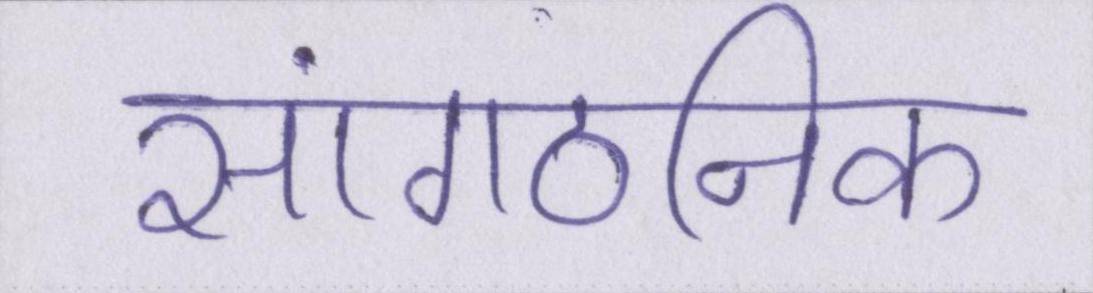 सांगठनिक